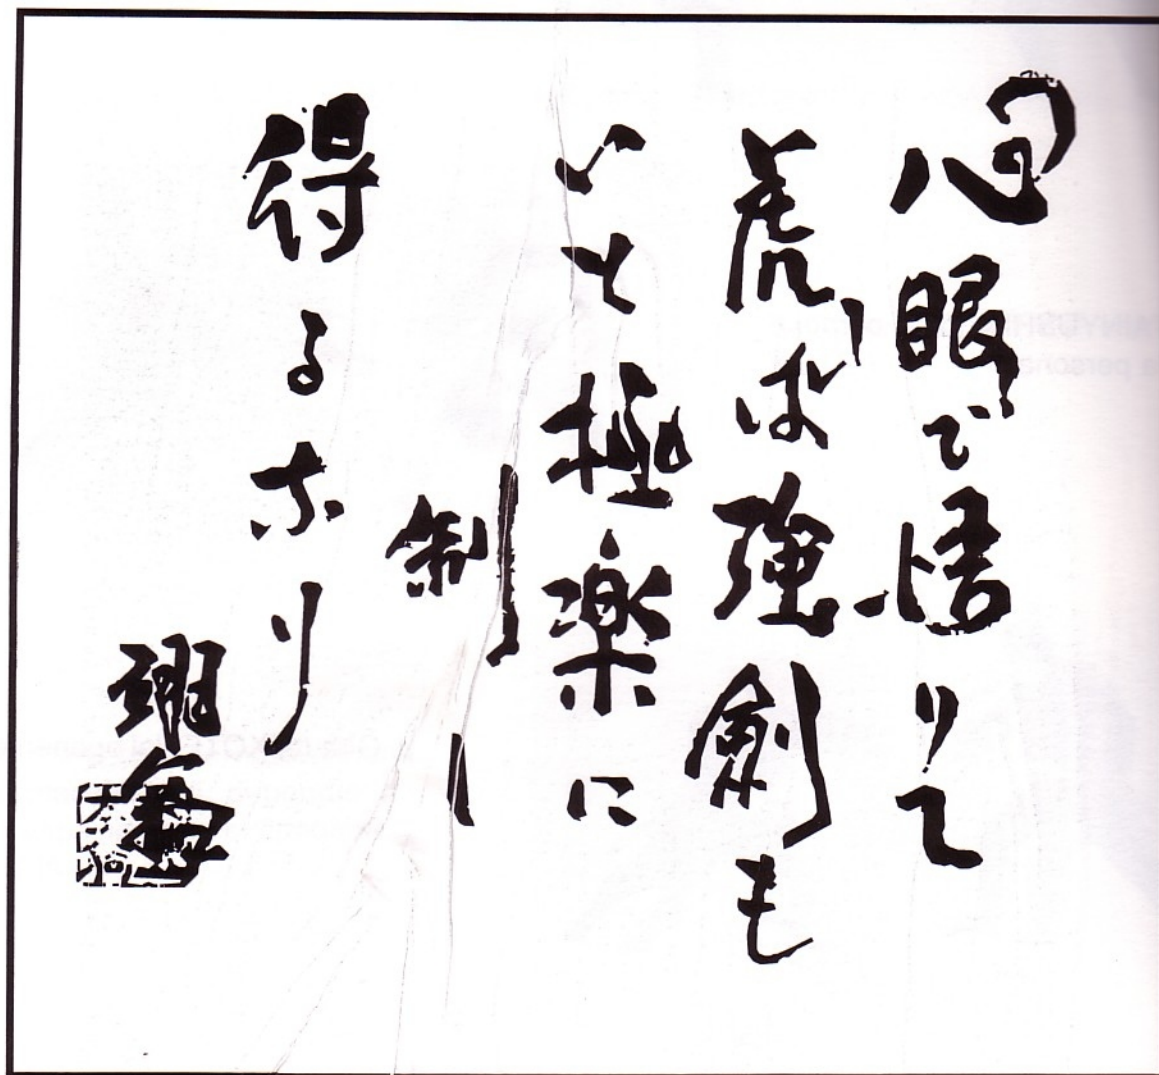 心眼で悟りて
ば強剣も
いと極楽に
制し
得るなり